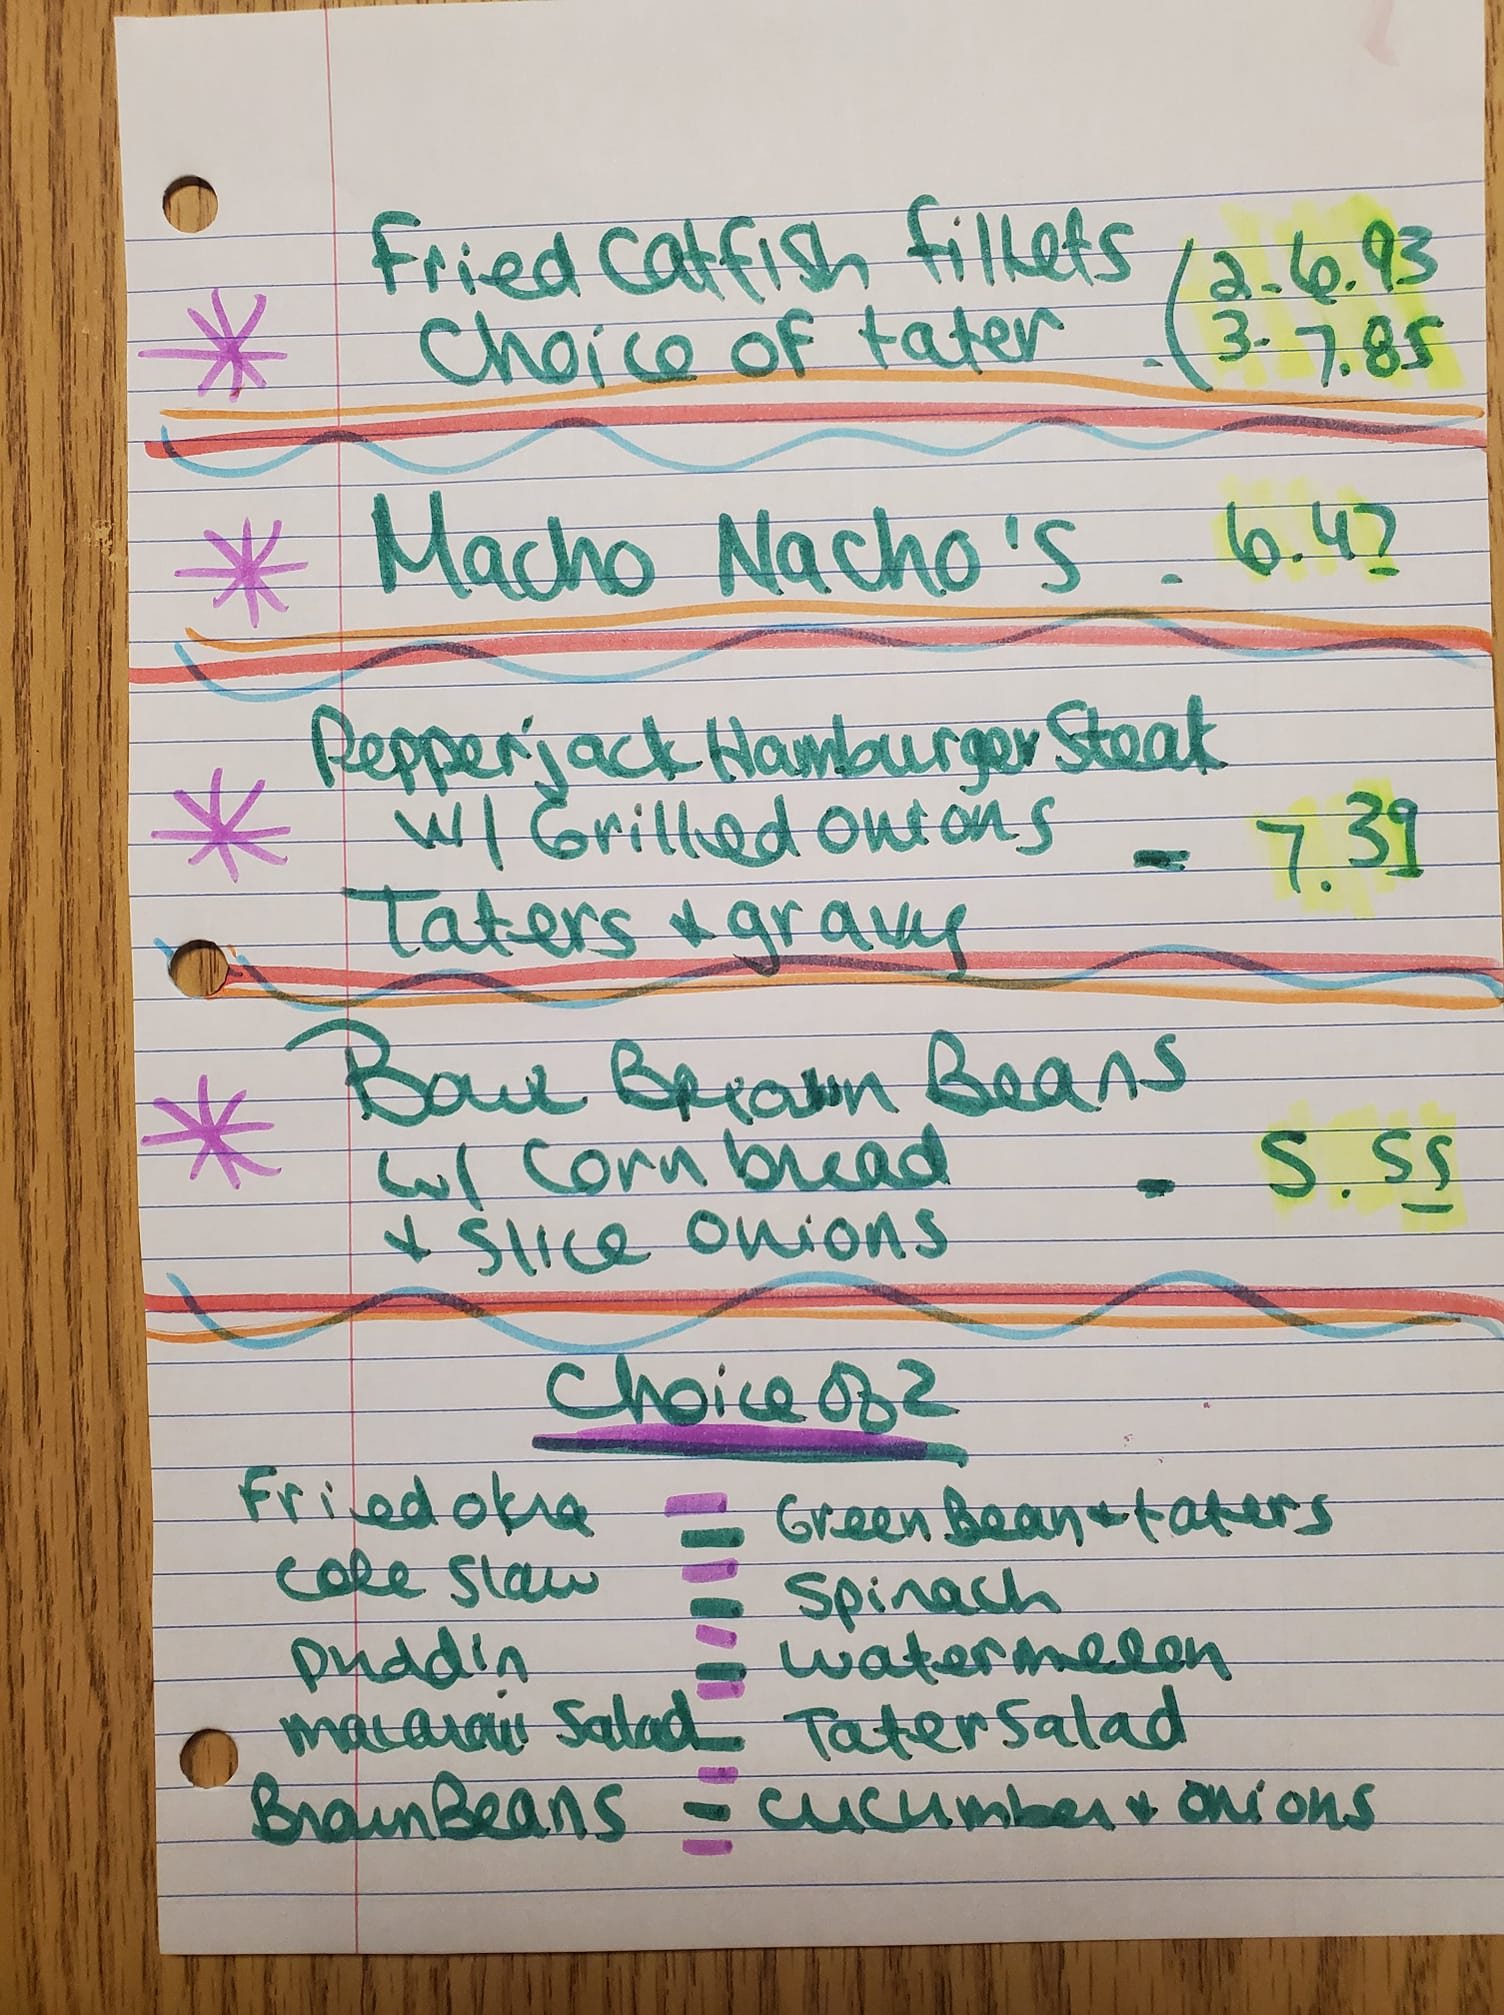 Fried Catfish fillets (2-6.93
Choice of tater - 3-7.85
Macho Nacho's - 6.47
Pepperjack Hamburger Steak
w/ Grilled onions - 7.39
Taters + gravy
Bowl Brown Beans
w/ Corn bread - 5.55
+ Slice onions
Choice of 2
Fried okra - Green Bean + taters
Cole Slaw - Spinach
Puddin - watermelon
macaroni Salad - Tater Salad
Brown Beans - cucumber + onions